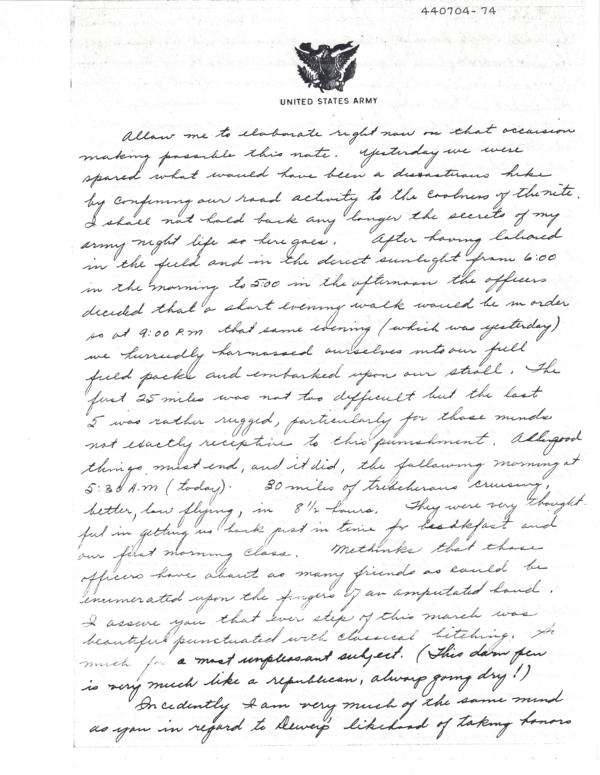 440704-74
UNITED STATES ARMY
Allow me to elaborate right now on that occaision
making possible this note. Yesterday we were
spared what would have been a dissastrous hike
by confining our road activity to the coolness of the nite.
I shall not hold back any longer the secrets of my
army night life so here goes. After having labored
in the field and in the direct sunlight from 6:00
in the morning to 5:00 in the afternoon the officers
decided that a short evening walk would be in order
so at 9:00 P.M that same evening (which was yesterday)
we hurriedly harnassed ourselves into our full
field packs and embarked upon our stroll. The
first 25 miles was not too difficult but the last
5 was rather rugged, particularly for those minds
not exactly receptive to this punishment. All good
things must end, and it did, the following morning at
5:30 A.M (today). 30 miles of trecherous cruising,
better, low flying, in 8 1/2 hours. They were very thought-
ful in getting us back just in time for breakfast and
our first morning class. Methinks that those
officers have about as many friends as could be
enumerated upon the fingers of an amputated hand.
I assure you that ever step of this march was
beautiful punctuated with classical bitching. So
much for a most unpleasant subject. (This darn pen
is very much like a republican, always going dry!)
Incidently I am very much of the same mind
as you in regard to Dewey's likehood of taking honors